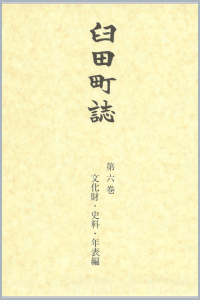 臼田町誌
第六巻
文化財・史料・年表編